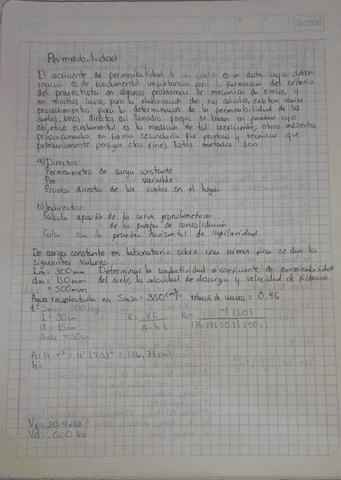 Scribe
Permeabilidad
El coeficiente de permeabilidad de un suelo es un dato cuya deter-
minacion es de fundamental importancia para la formacion del criterio
del proyectista en algunos problemas de mecanica de suelos, y
en muchos casos, para la elaboracion de sus calculos, existen varios
procedimientos para la determinacion de la permeabilidad de los
suelos, unos directos asi llamados porque se basan en pruebas cuyo
objetivo fundamental es la medicion de tal coeficiente; otros indirectos
proporcionados en forma secundaria por pruebas y tecnicas que
primariamente persiguen otros fines. Estos metodos son
a) Directos:
Permeametro de carga constante
Per variable
Prueba directa de los suelos en el lugar
b) Indirectos:
Calculo apartir de la curva granulometrica
de la prueba de consolidacion
Calc con la prueba horizontal de capilaridad.
De carga constante en laboratorio sobre una arena fina se dan los
siguientes valores.
Lm = 300 mm Determinar la conductividad o coeficiente de permeabilidad
dm = 150 mm del suelo, la velocidad de descarga y velocidad de filtracion.
= 500 mm
Agua recolectada en 5min = 350 cm³. relacion de vacios = 0.46
t = 5min
L = 30cm K = VL K =
d = 15cm A·h·t
= 50cm
A = π·r² = π (7.5)² = 176.71 cm²
h =
Vd =